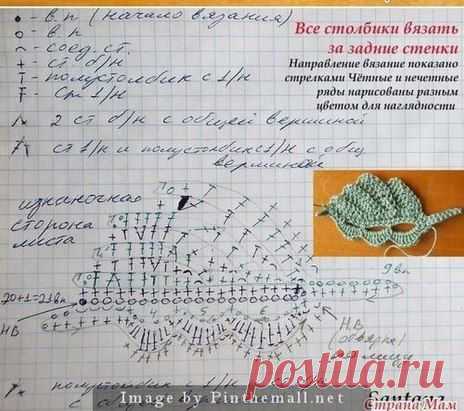 • - в.п. (начало вязания)
о - в.п.
- соед. ст.
+ - ст. б/н
т - полустолбик с 1/н
- ст 1/н
2 ст б/н с общей вершиной
ст 1/н и полустолбик с 1/н с общ
вершиной
Все столбики вязать
за задние стенки
Направление вязание показано
стрелками Чётные и нечетные
ряды нарисованы разным
цветом для наглядности
изнаночная
сторона
листа
9 вп
20+1=21вп
НВ
НВ
(обвязка)
полустолбик с 1/н
Image from Pinthemall.net
postila.ru
Santana
Страна Мам